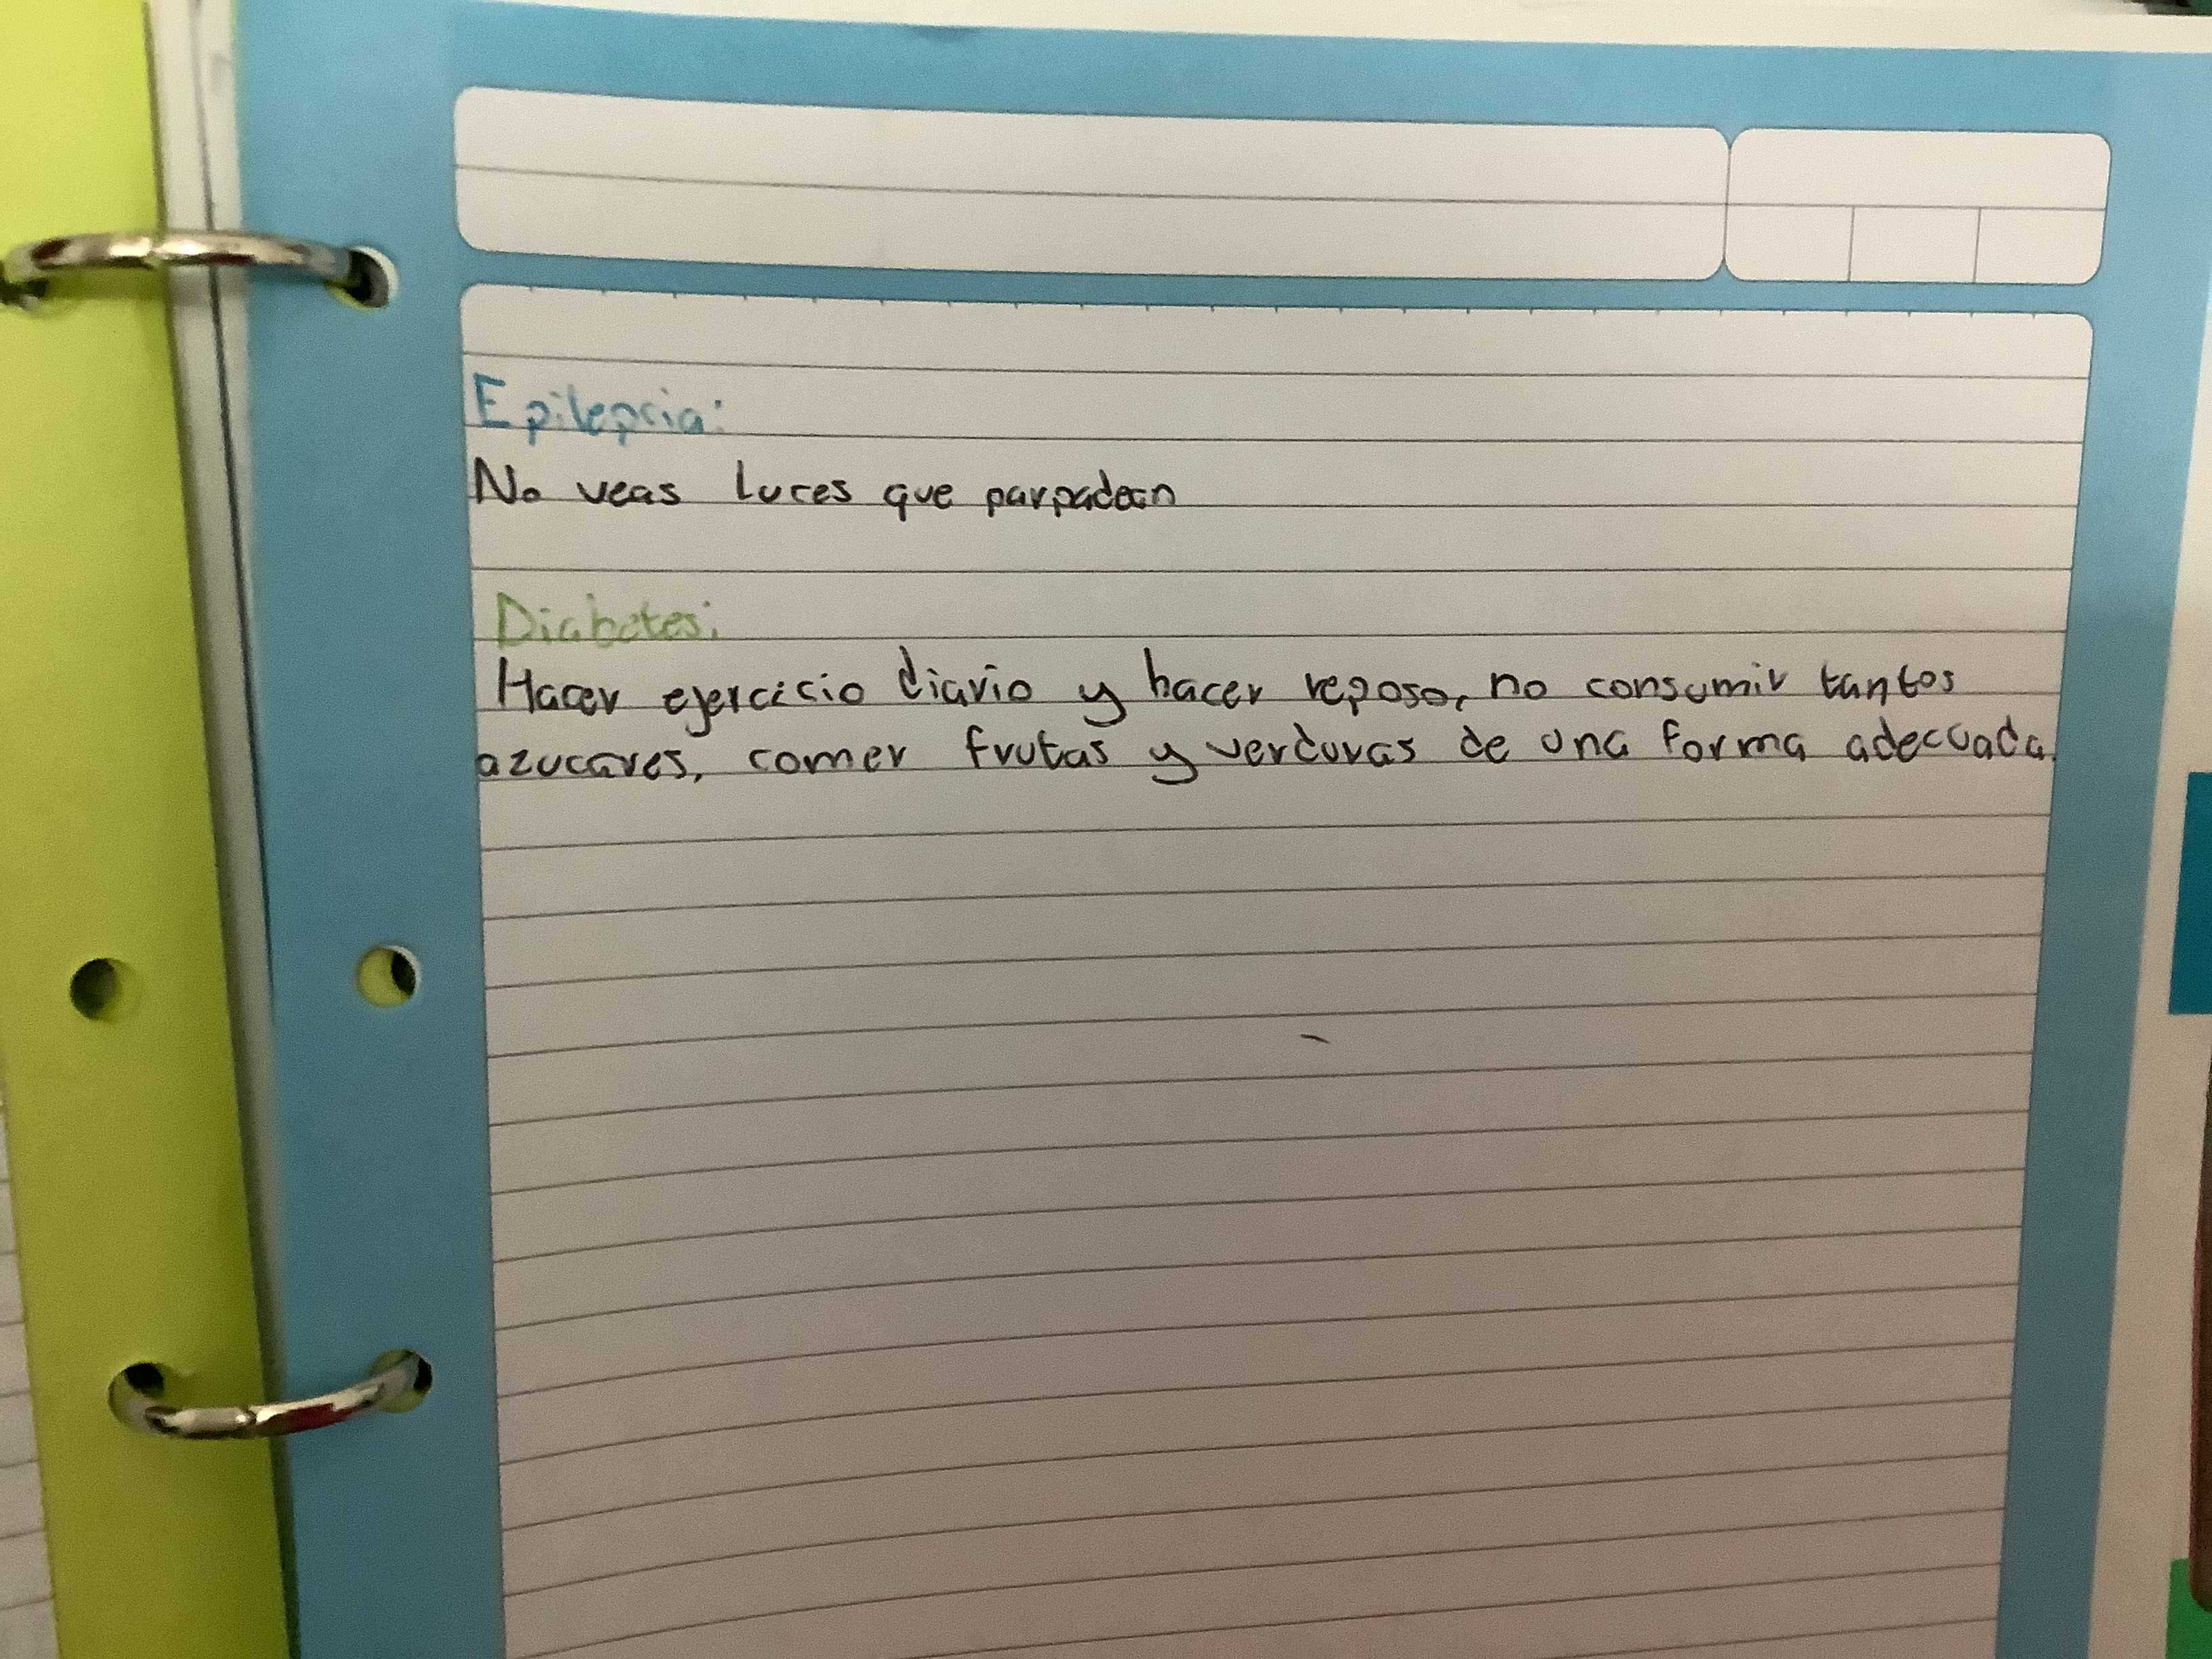 Epilepsia:
No veas luces que parpadean
Diabetes:
Hacer ejercicio diario y hacer reposo, no consumir tantos
azucares, comer frutas y verduras de una forma adecuada.